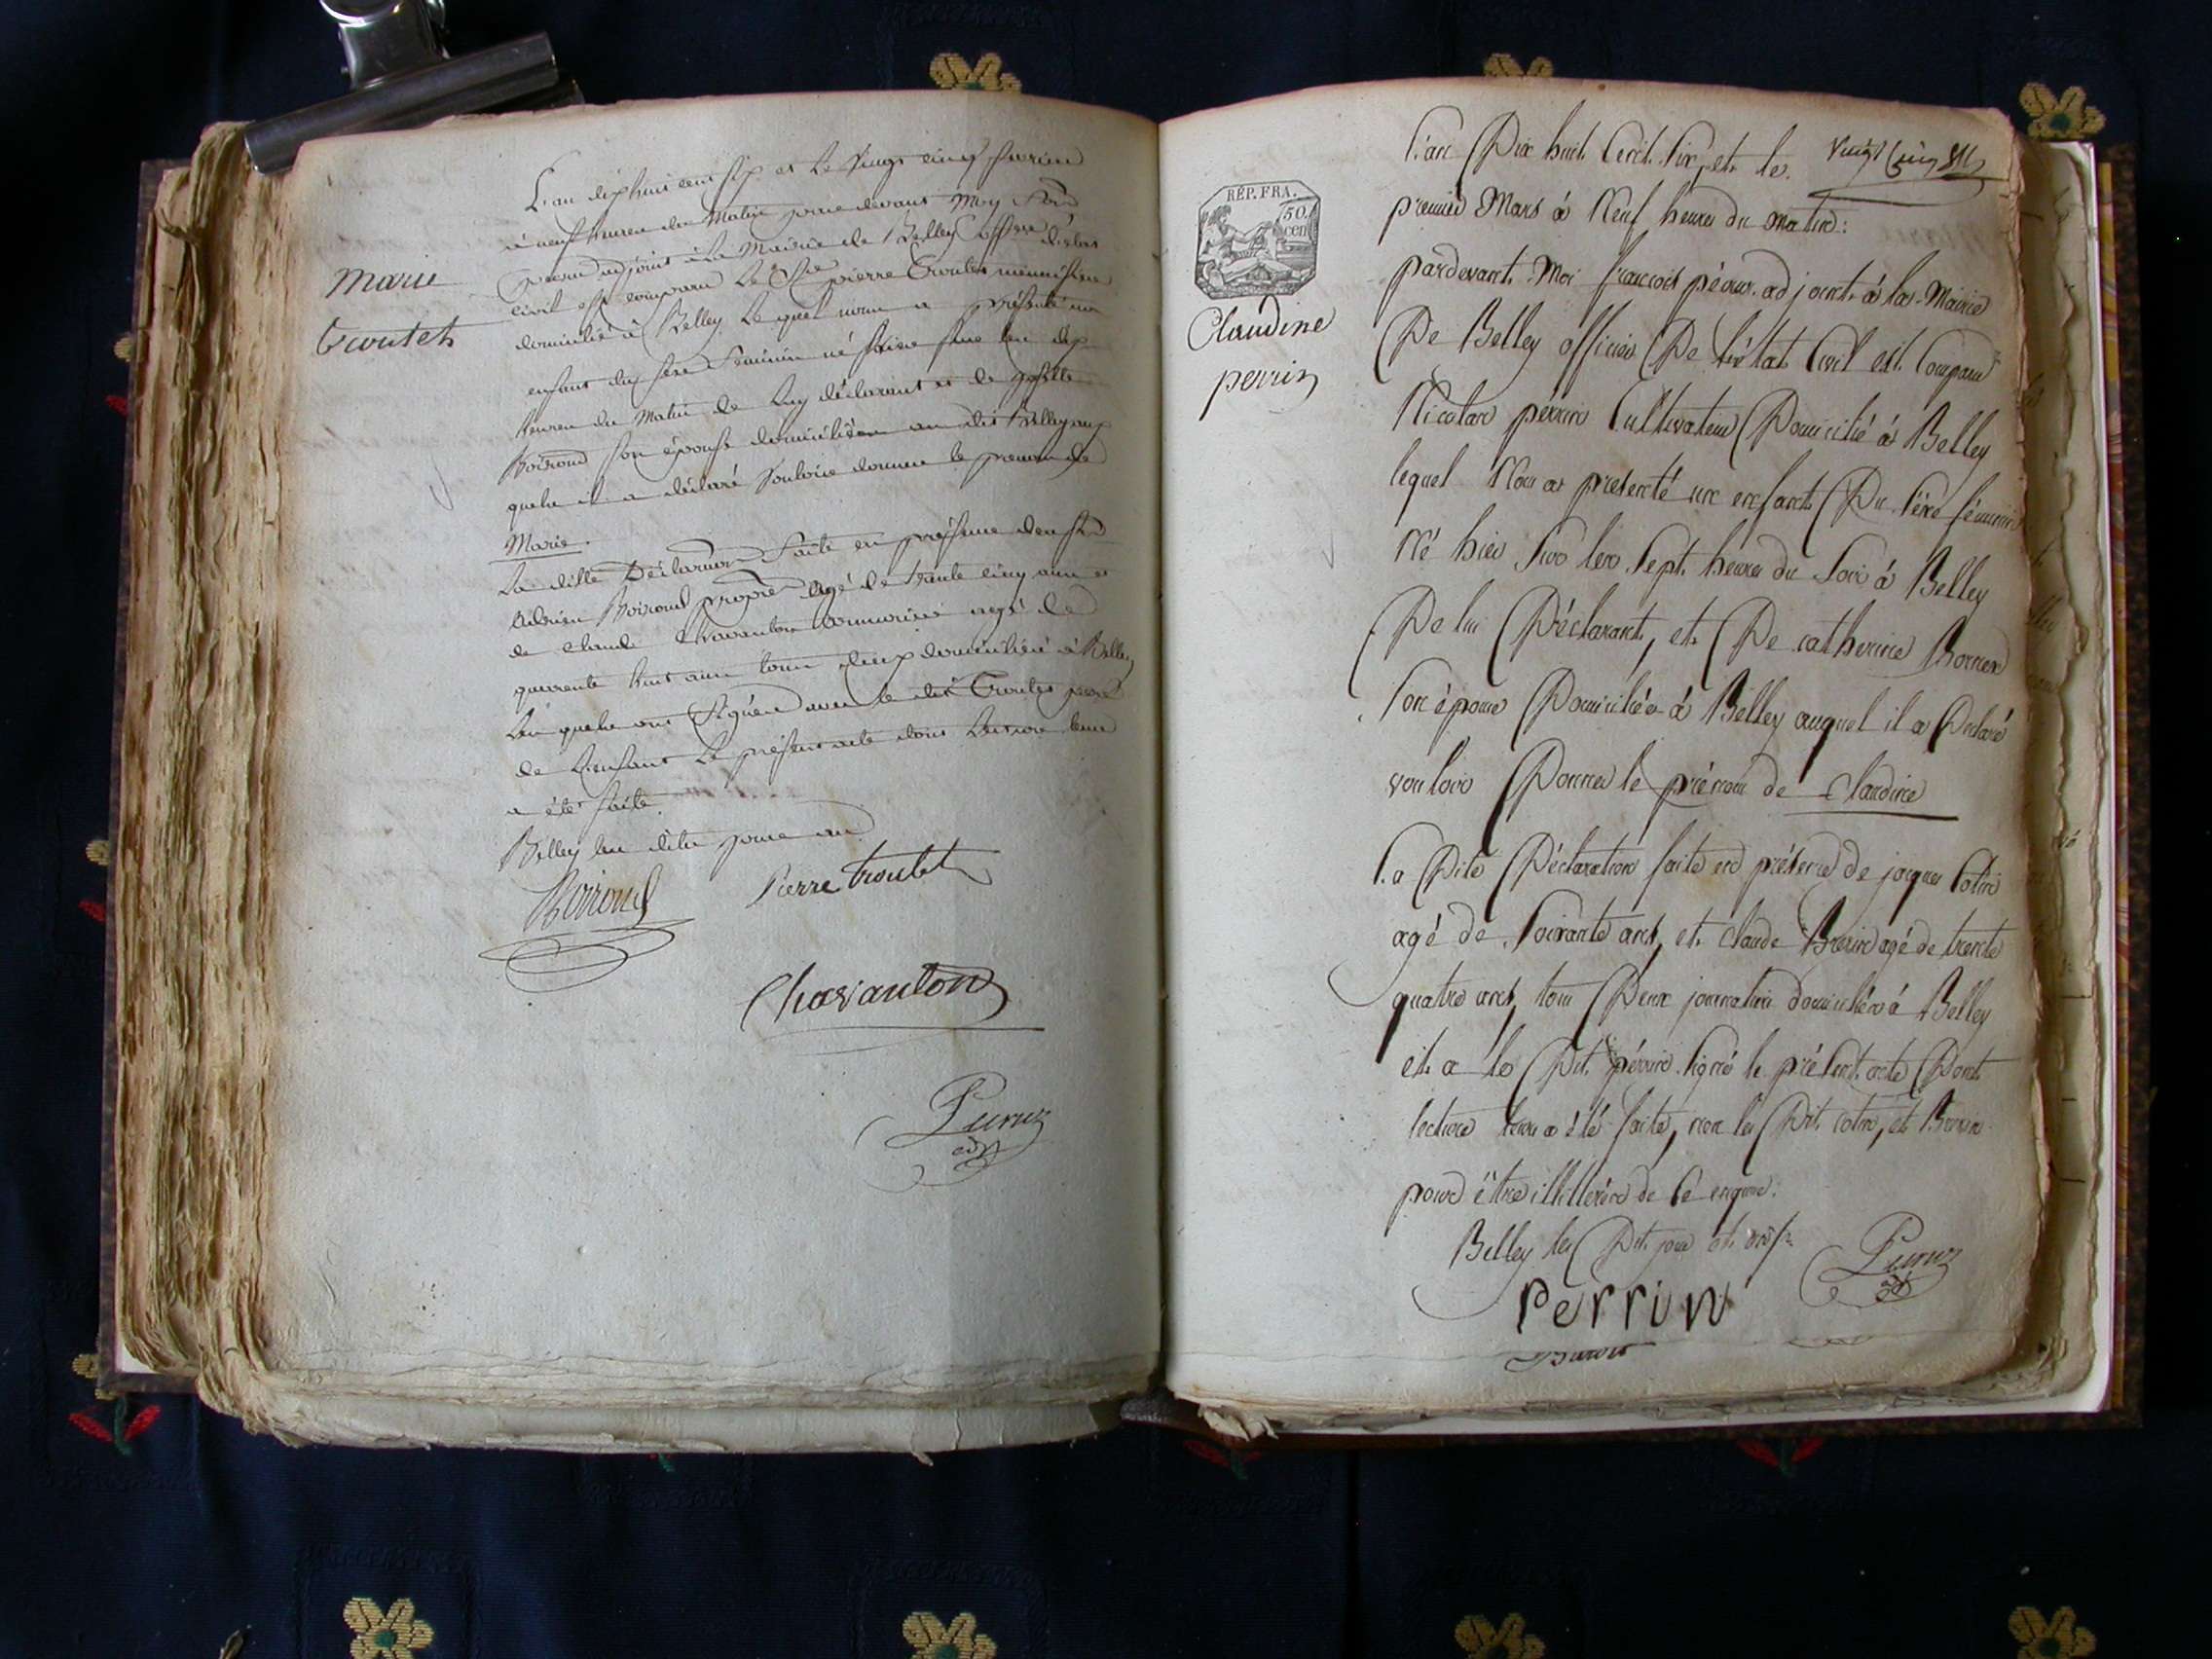 Marie
troutet
L'an dix huit cent six et le vingt cinq fevrier
à neuf heures du Matin pardevant Moy
adjoint à la Mairie de Belley officier de l'etat
civil est comparu le Sr pierre Troutet menuisier
domicilié à Belley lequel nous a présenté un
enfant du sexe feminin né
heures du Matin de luy déclarant et de
Boiroud son épouse domiciliés au dit Belley au
quels il a déclaré vouloir donner le prénom de
Marie.
La ditte Déclaration faite en présence de
Adrien Boiroud propre agé de trente cinq ans et
de claude Chavanton agé de
quarante huit ans tous deux domiciliés à Belley
Lesquels ont Signés avec le dit Troutet pere
de L'enfant Le présent acte dont Lecture leur
a été faite.
Belley les dits jour an
Boiroud
Pierre troutet
Chavanton
adj
Vingt Cinq
RÉP. FRA.
50.
cen
Claudine
perrin
L'an Dix huit Cent Six, et le
premier Mars à Neuf heures du matin:
pardevant Moi françois adjoint à la Mairie
De Belley officier De l'état Civil est Comparu
Nicolas pérrin Cultivateur Domicilié à Belley
lequel Nous a presenté un enfant Du Séxe féminin
Né hier Sur les Sept heures du Soir à Belley
De lui Déclarant, et De catherine
Son épouse Domiciliés à Belley auquel il a Déclaré
vouloir Donner le prénom de Claudine
La Dite Déclaration faite en présence de jacques Cottin
agé de Soixante ans, et claude agé de trente
quatre ans, tous Deux journaliers domiciliés à Belley
et a le Dit pérrin signé le présent acte Dont
lecture leur a été faite, non les Dit Cottin, et
pour être illitérés de Ce enquis:
Belley les Dit jour et an
Perrin
adj